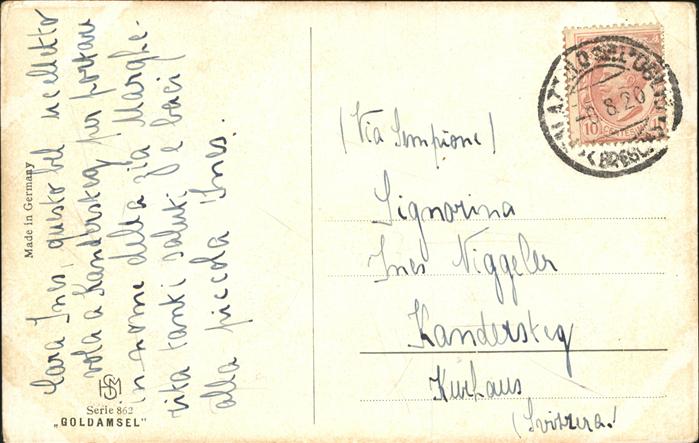 Cara Ines, questo bel uccelletto
vola a Kandersteg per portare
in nome della zia Marghe-
rita tanti saluti e baci
alla piccola Ines.
Made in Germany
Serie 862
„GOLDAMSEL"
(Via Sempione)
Signorina
Ines Niggeler
Kandersteg
Kurhaus
(Svizzera)
8.20
10 CENTESIMI